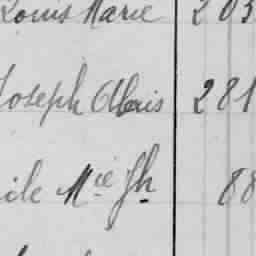 Louis Marie 203
Joseph Alexis 281
ile Mie Jh 88